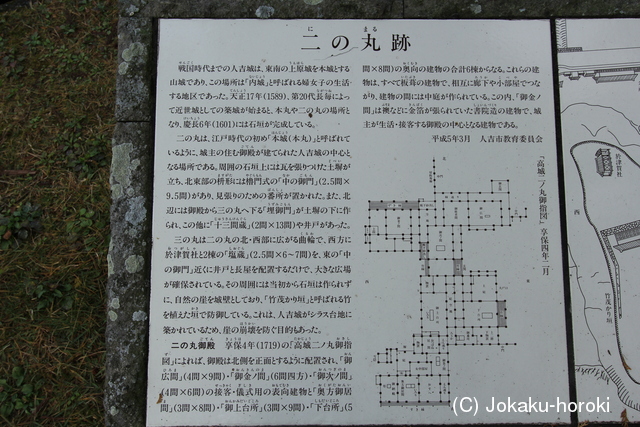 二の丸跡
戦国時代までの人吉城は、東南の上原城を本城とする
山城であり、この場所は「内城」と呼ばれる婦女子の生活
する地区であった。天正17年(1589)、第20代長毎によっ
て近世城としての築城が始まると、本丸や二の丸の場所と
なり、慶長6年(1601)には石垣が完成している。
二の丸は、江戸時代の初め「本城(本丸)」と呼ばれて
いるように、城主の住む御殿が建てられた人吉城の中心と
なる場所である。周囲の石垣上には瓦を張りつけた土塀が
立ち、北東部の枡形には櫓門式の「中の御門」(2.5間×
9.5間)があり、見張りのための番所が置かれた。また、北
辺には御殿から三の丸へ下る「埋御門」が土塀の下に作
られ、この他に「十三間蔵」(2間×13間)や井戸があった。
三の丸は二の丸の北・西部に広がる曲輪で、西方に
於津賀社と2棟の「塩蔵」(2.5間×6〜7間)を、東の「中
の御門」近くに井戸と長屋を配置するだけで、大きな広場
が確保されている。その周囲には当初から石垣は作られず
に、自然の崖を城壁としており、「竹茂かり垣」と呼ばれる竹
を植えた垣で防御している。これは、人吉城がシラス台地に
築かれているため、崖の崩壊を防ぐ目的もあった。
二の丸御殿 享保4年(1719)の「高城二ノ丸御指
図」によれば、御殿は北側を正面とするように配置され、「御
広間」(4間×9間)・「御金ノ間」(6間四方)・「御次ノ間」
(4間×6間)の接客・儀式用の表向建物と「奥方御居
間」(3間×8間)・「御上台所」(3間×9間)・「下台所」(5
間×8間)の奥向の建物の合計6棟からなる。これらの建
物は、すべて板葺の建物で、相互に廊下や小部屋でつな
がり、建物の間には中庭が作られている。この内、「御金ノ
間」は襖などに金箔が張られている書院造の建物で、城
主が生活・接客する御殿の中心となる建物である。
平成5年3月 人吉市教育委員会
『高城二ノ丸御指図』享保四年二月
於津賀社
西
竹茂かり垣
(C) Jokaku-horoki